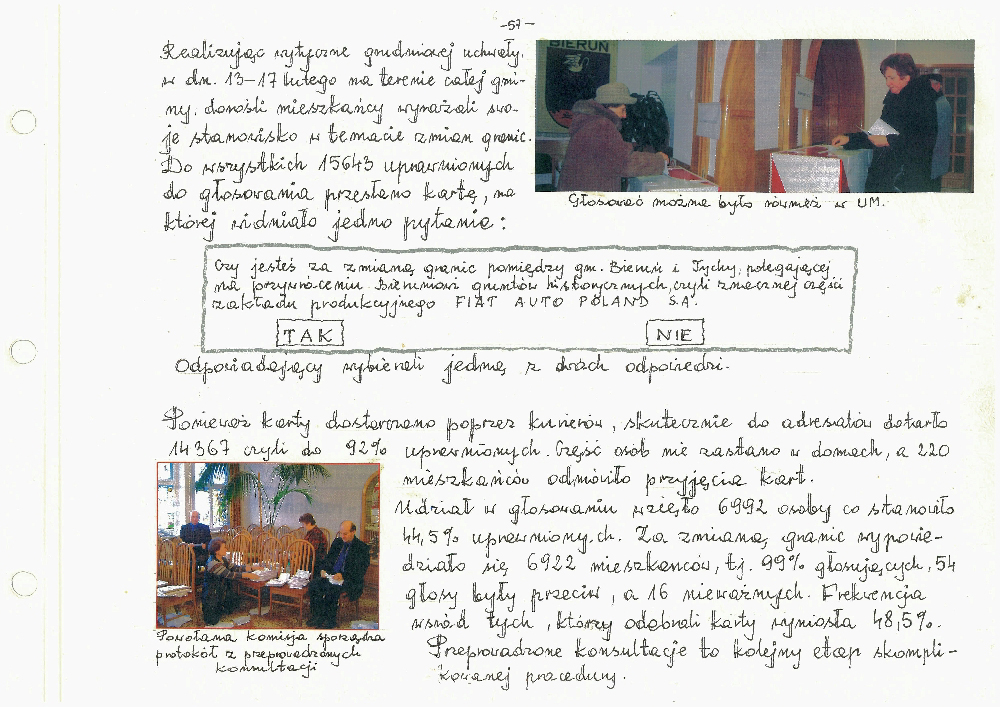 -57-
Realizując wytyczne grudniowej uchwały,
w dn. 13-17 lutego na terenie całej gmi-
ny, dorośli mieszkańcy wyrażali swo-
je stanowisko w temacie zmian granic.
Do wszystkich 15643 uprawnionych
do głosowania przesłano kartę, na
której widniało jedno pytanie:
BIERUŃ
Głosować można było również w UM.
Czy jesteś za zmianą granic pomiędzy gm. Bieruń i Tychy, polegającej
na przywróceniu Bieruniowi gruntów historycznych, czyli znacznej części
zakładu produkcyjnego FIAT AUTO POLAND S.A.
TAK NIE
Odpowiadający wybierali jedną z dwóch odpowiedzi.
Ponieważ karty dostarczano poprzez kurierów, skutecznie do adresatów dotarło
14367 czyli do 92% uprawnionych. Część osób nie zastano w domach, a 220
mieszkańców odmówiło przyjęcia kart.
Udział w głosowaniu wzięło 6992 osoby co stanowiło
44,5% uprawnionych. Za zmianą granic wypowie-
działo się 6922 mieszkańców, tj. 99% głosujących, 54
głosy były przeciw, a 16 nieważnych. Frekwencja
wśród tych, którzy odebrali karty wyniosła 48,5%.
Przeprowadzone konsultacje to kolejny etap skompli-
kowanej procedury.
Powołana komisja sporządza
protokół z przeprowadzonych
konsultacji